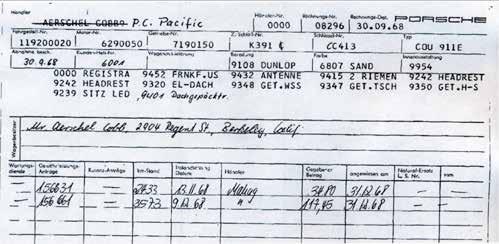 Händler Händler-Nr. Rechnungs-Nr. Rechnungs-Dat. PORSCHE
AERSCHEL COBB P.C. Pacific 0000 08296 30.09.68
Fahrgestell-Nr. Motor-Nr. Getriebe-Nr. Zü.Schloß-Nr. Schlüssel-Nr. Typ
119200020 6290050 7190150 K391 CC413 COU 911E
Abnahme besch. Kunden-Heft-Nr. Bereifung Farbe Innenausstattung
30.9.68 6001 9108 DUNLOP 6807 SAND 9954
0000 REGISTRA 9452 FRNKF.US 9432 ANTENNE 9415 2 RIEMEN 9242 HEADREST
9242 HEADREST 9320 EL-DACH 9348 GET.WSS 9347 GET.TSCH 9350 GET.H-S
9239 SITZ LED 9401 Dachgepäcktr.
Wagenbesitzer
Mr. Aerschel Cobb, 2904 Regent St, Berkeley, Calif.
Wartungsdienste Gewährleistungs-Anträge Kulanz-Anträge Km-Stand Datum Händler Gegebener Betrag angewiesen am Natural-Ersatz L.S. Nr. vom
— 156631 — 2433 13.11.68 34.80 31.12.68 — —
— 156661 — 3573 9.12.68 " 117,45 31.12.68 — —